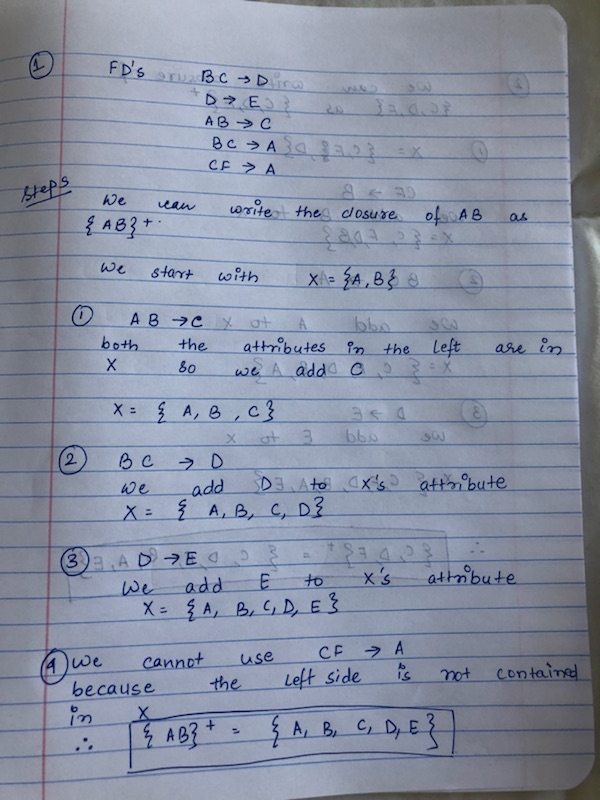 1 FD's BC → D
D → E
AB → C
BC → A
CF → A
Steps
We can write the closure of AB as
{AB}+.
We start with X = {A, B}
1 AB → C
both the attributes in the left are in
X so we add C
X = { A, B, C}
2 BC → D
we add D to X's attribute
X = { A, B, C, D}
3 D → E
We add E to X's attribute
X = {A, B, C, D, E}
4 We cannot use CF → A
because the left side is not contained
in X
∴ {AB}+ = {A, B, C, D, E}